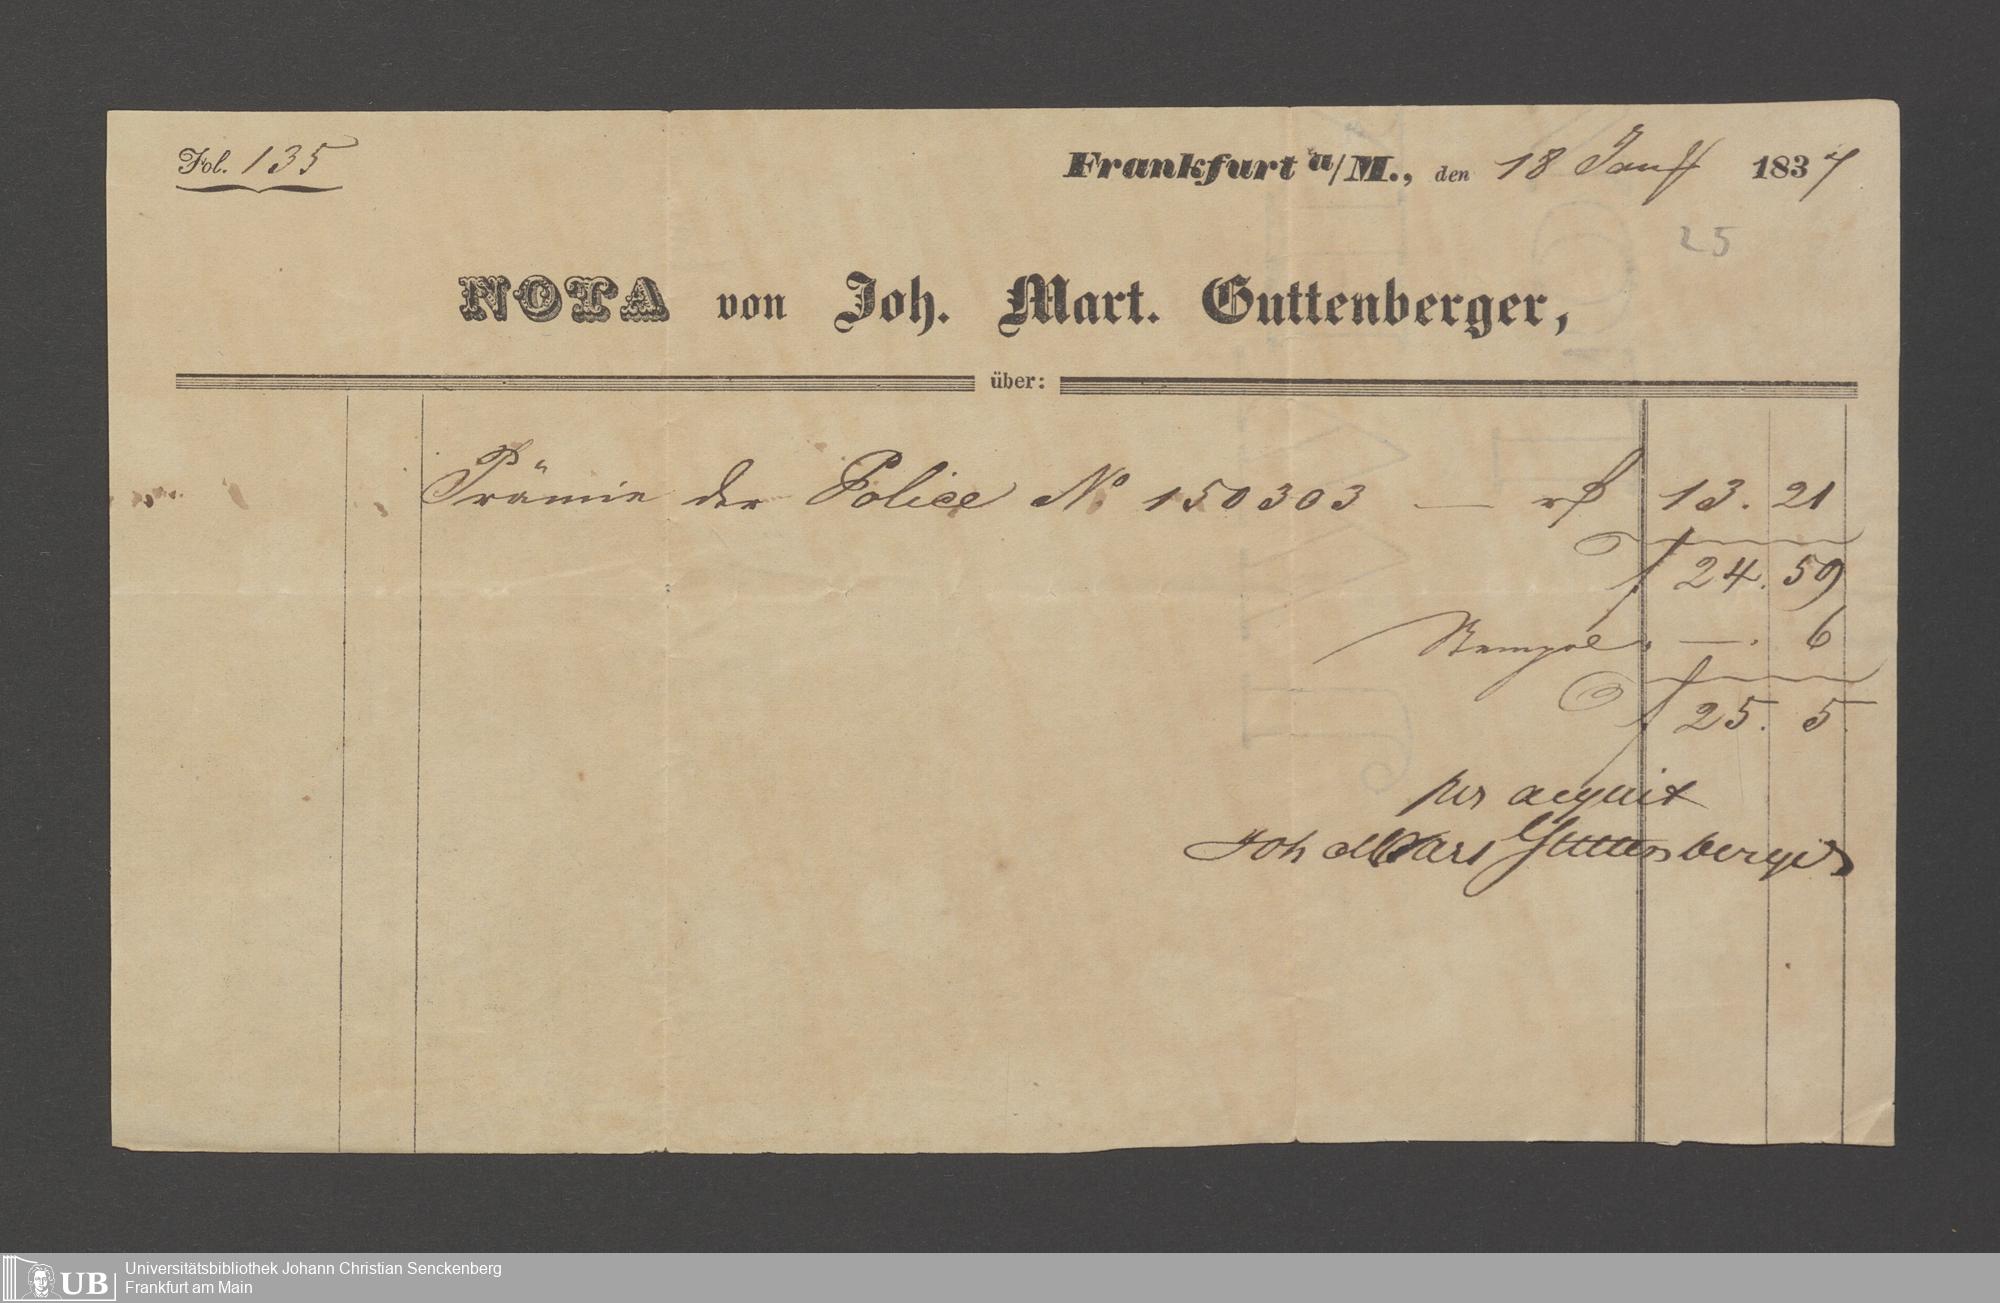 Fol. 135
Frankfurt a/M., den 18 1837
25
NOTA von Joh. Mart. Guttenberger,
über:
Prämie der Police No 150303 — 13. 21
f 24. 59
Stempel. —. 6
f 25. 5
per acquit
Joh Mart Guttenberger
UB
Universitätsbibliothek Johann Christian Senckenberg
Frankfurt am Main